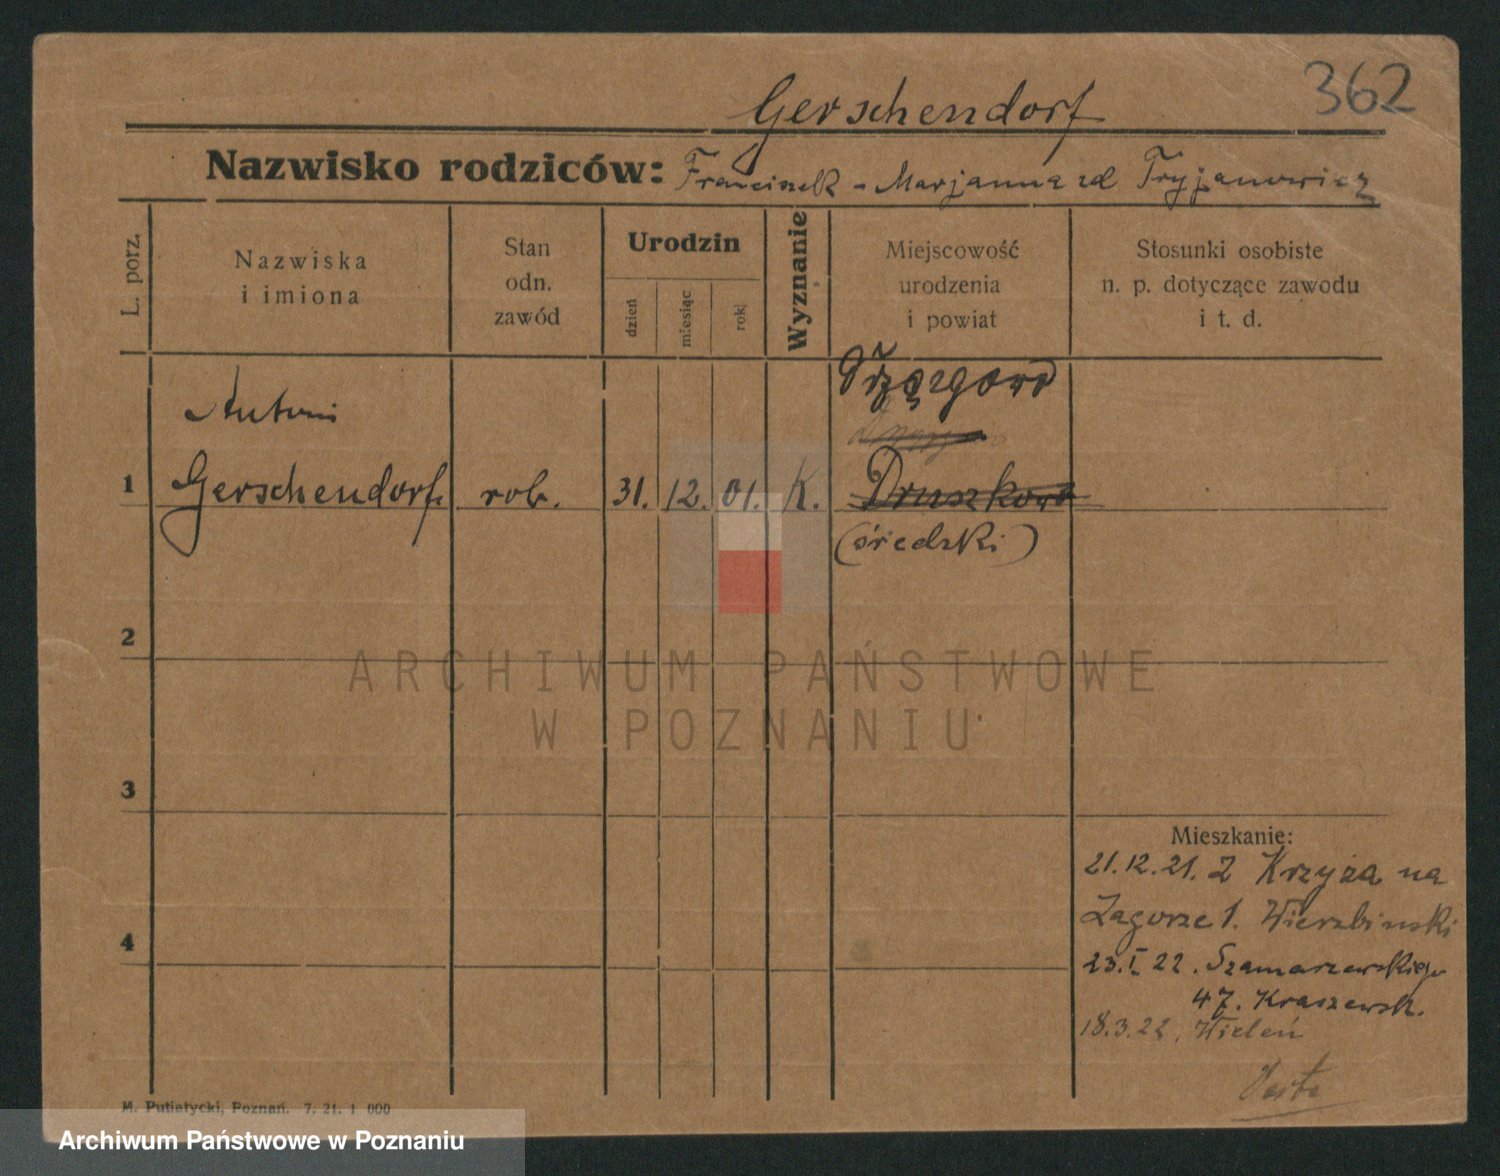 362
Gerschendorf
Nazwisko rodziców: Franciszek - Marjanna zd Tryjanowicz
L. porz.
Nazwiska
i imiona
Stan
odn.
zawód
Urodzin
dzień
miesiąc
rok
Wyznanie
Miejscowość
urodzenia
i powiat
Stosunki osobiste
n. p. dotyczące zawodu
i t. d.
Antoni
1 Gerschendorf rob. 31. 12. 01. K. Druszkowo
(średzki)
2
ARCHIWUM PAŃSTWOWE
W POZNANIU
3
Mieszkanie:
21.12.21. Z Krzyża na
Zagorze 1. Wierzbinski
4
23.I 22. Szamarzewskiego
47. Kraszewsk.
18.3.22. Wieleń
M. Putiatycki, Poznań. 7. 21. 1 000
Archiwum Państwowe w Poznaniu